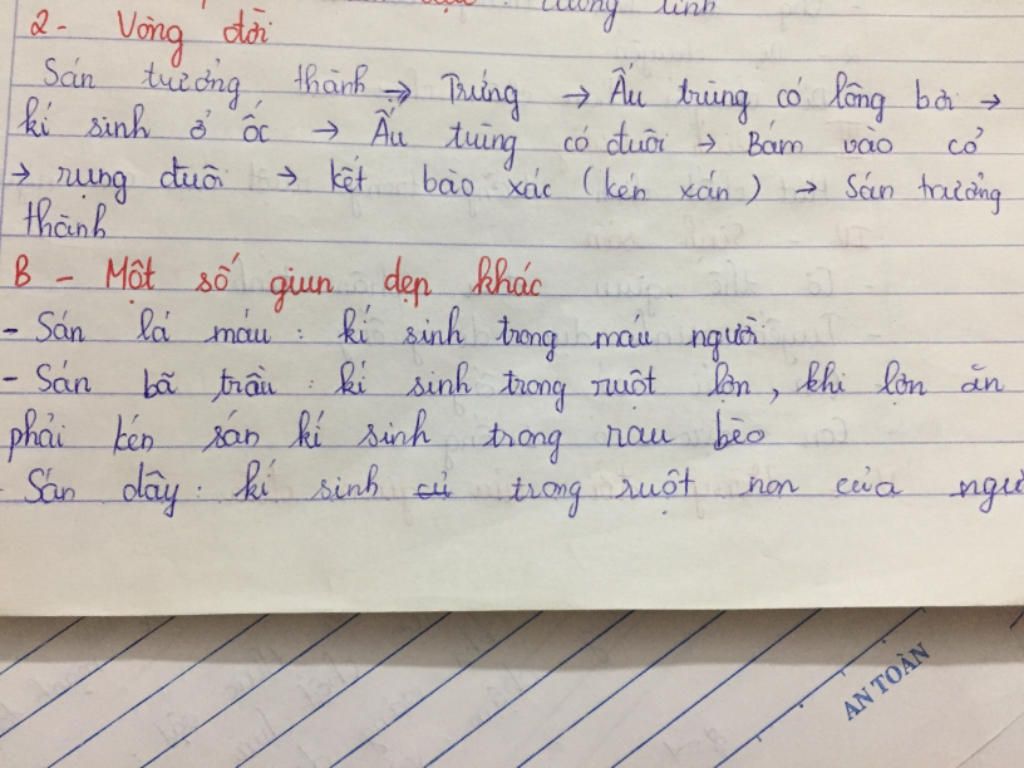 lưỡng tính
2- Vòng đời
Sán trưởng thành → Trứng → Ấu trùng có lông bơi →
kí sinh ở ốc → Ấu trùng có đuôi → Bám vào cỏ
→ rụng đuôi → kết bào xác (kén xán) → Sán trưởng
thành
B - Một số giun dẹp khác
- Sán lá máu: kí sinh trong máu người
- Sán bã trầu: kí sinh trong ruột lợn, khi lợn ăn
phải kén sán kí sinh trong rau bèo
- Sán dây: kí sinh trong ruột non của ngư
AN TOÀN